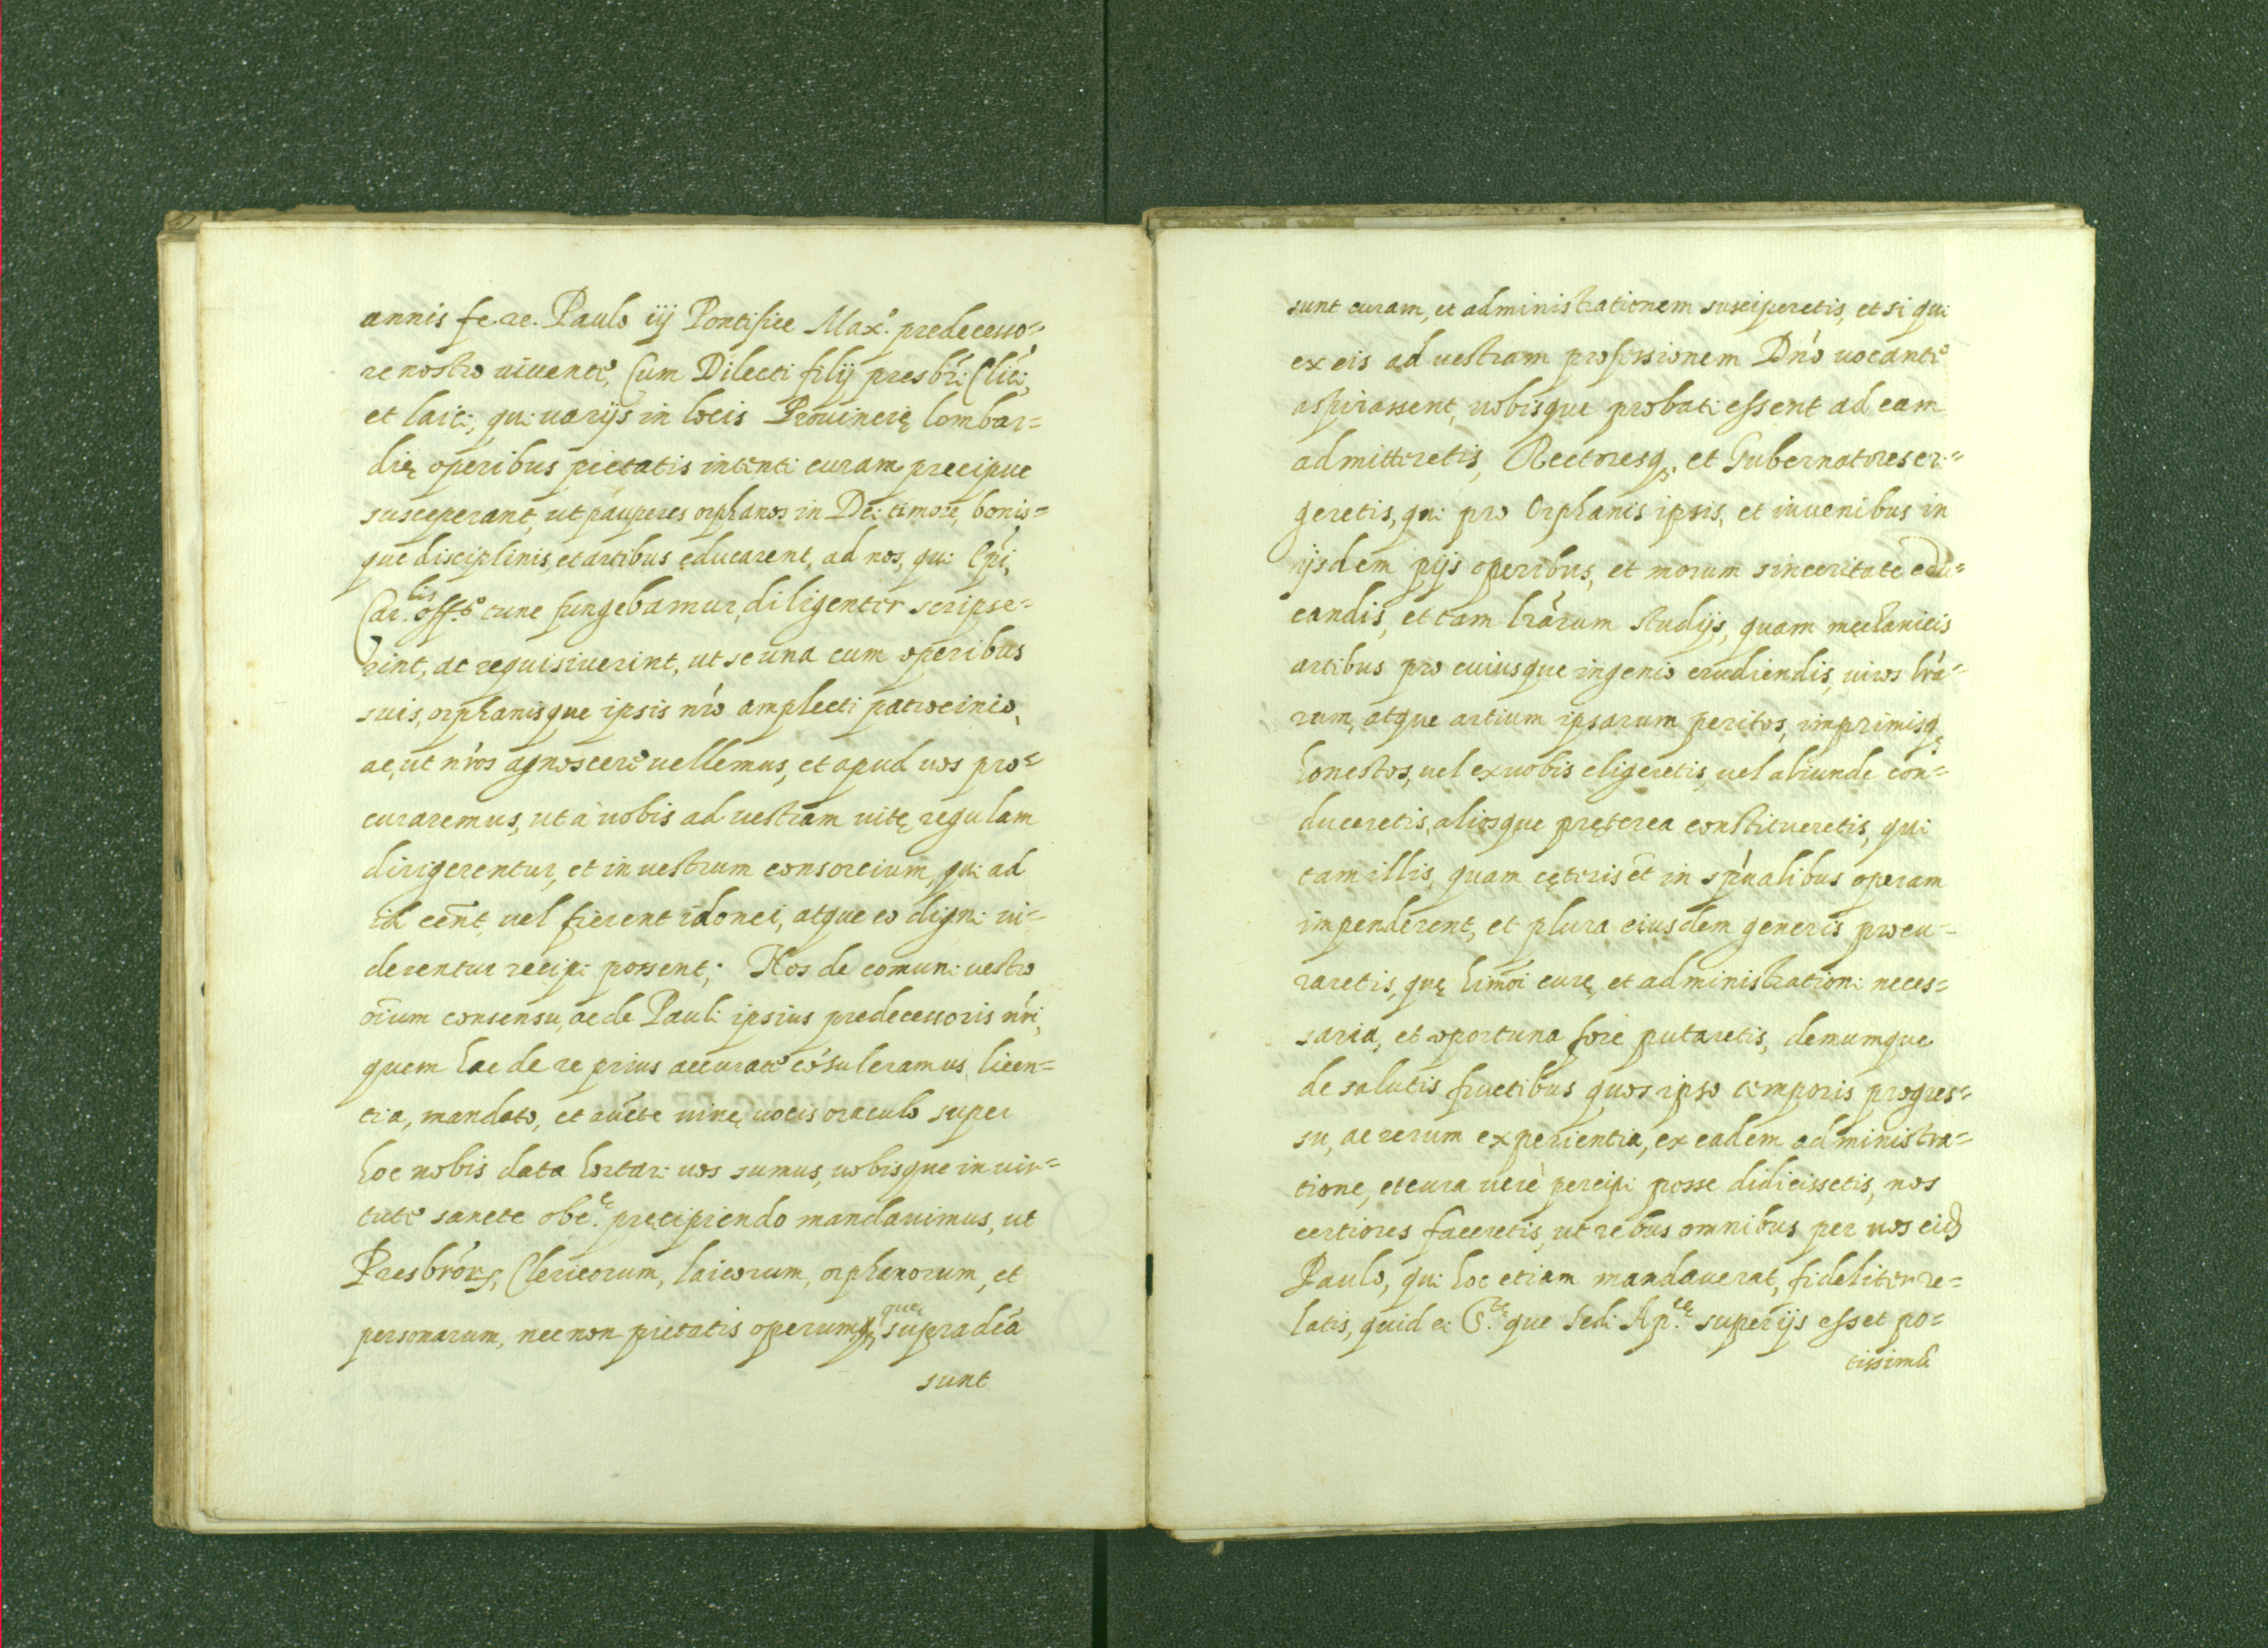 annis fe. re. Paulo iij Pontifice Max.º predecesso=
re nostro uiuente, Cum Dilecti filij presbri Clici,
et laici, qui uarijs in locis Prouincię lombar=
dię operibus pietatis intenti curam precipue
susceperant, ut pauperes orphanos in Dei timore, bonis=
que disciplinis, et artibus educarent, ad nos, qui Epi,
Car.lis off.º tunc fungebamur, diligenter scripse=
rint, ac requisiuerint, ut se una cum operibus
suis, orphanisque ipsis nrõ amplecti patrocinio,
ac, ut nrõs agnoscere uellemus, et apud uos pro=
curaremus, ut à uobis ad uestram uitę regulam
dirigerentur, et in uestrum consortium, qui ad
id eent, uel fierent idonei, atque eo digni ui=
derentur recipi possent; Nos de comuni uestro
oium consensu, ac de Pauli ipsius predecessoris nri,
quem hac de re prius accurate cõsuleramus, licen=
tia, mandato, et aucte uiuę uocis oraculo super
hoc nobis data hortati uos sumus, uobisque in uir=
tute sancte obe.ę pręcipiendo mandauimus, ut
Presbrorꝝ, Clericorum, laicorum, orphanorum, et
personarum, nec non pietatis operum, quę supradcã
sunt
sunt curam, et administrationem susciperetis, et si qui
ex eis ad uestram professionem Dnõ uocante
aspirassent, uobisque probati essent ad eam
admitteretis, Rectoresq; et Gubernatores eri=
geretis, qui pro Orphanis ipsis, et iuuenibus in
ijsdem pijs operibus, et morum sinceritate edu=
candis, et tam lrãrum studijs, quam mechanicis
artibus pro cuiusque ingenio erudiendis, uiros lrã=
rum, atque artium ipsarum peritos, imprimisq;
honestos, uel ex uobis eligeretis, uel aliunde con=
duceretis, aliosque pręterea constitueretis, qui
tam illis, quam cęteris et in spũalibus operam
impenderent, et plura eiusdem generis procu=
raretis, quę hmõi curę, et administrationi neces=
saria, et oportuna fore putaretis, demumque
de salutis fructibus quos ipso temporis progres=
su, ac rerum experientia, ex eadem administra=
tione, et cura uerè percipi posse didicissetis, nos
certiores faceretis, ut rebus omnibus per nos eidẽ
Paulo, qui hoc etiam mandauerat, fideliter re=
latis, quid ei S.tę que Sedi Ap.cę super ijs esset po=
tissimũ